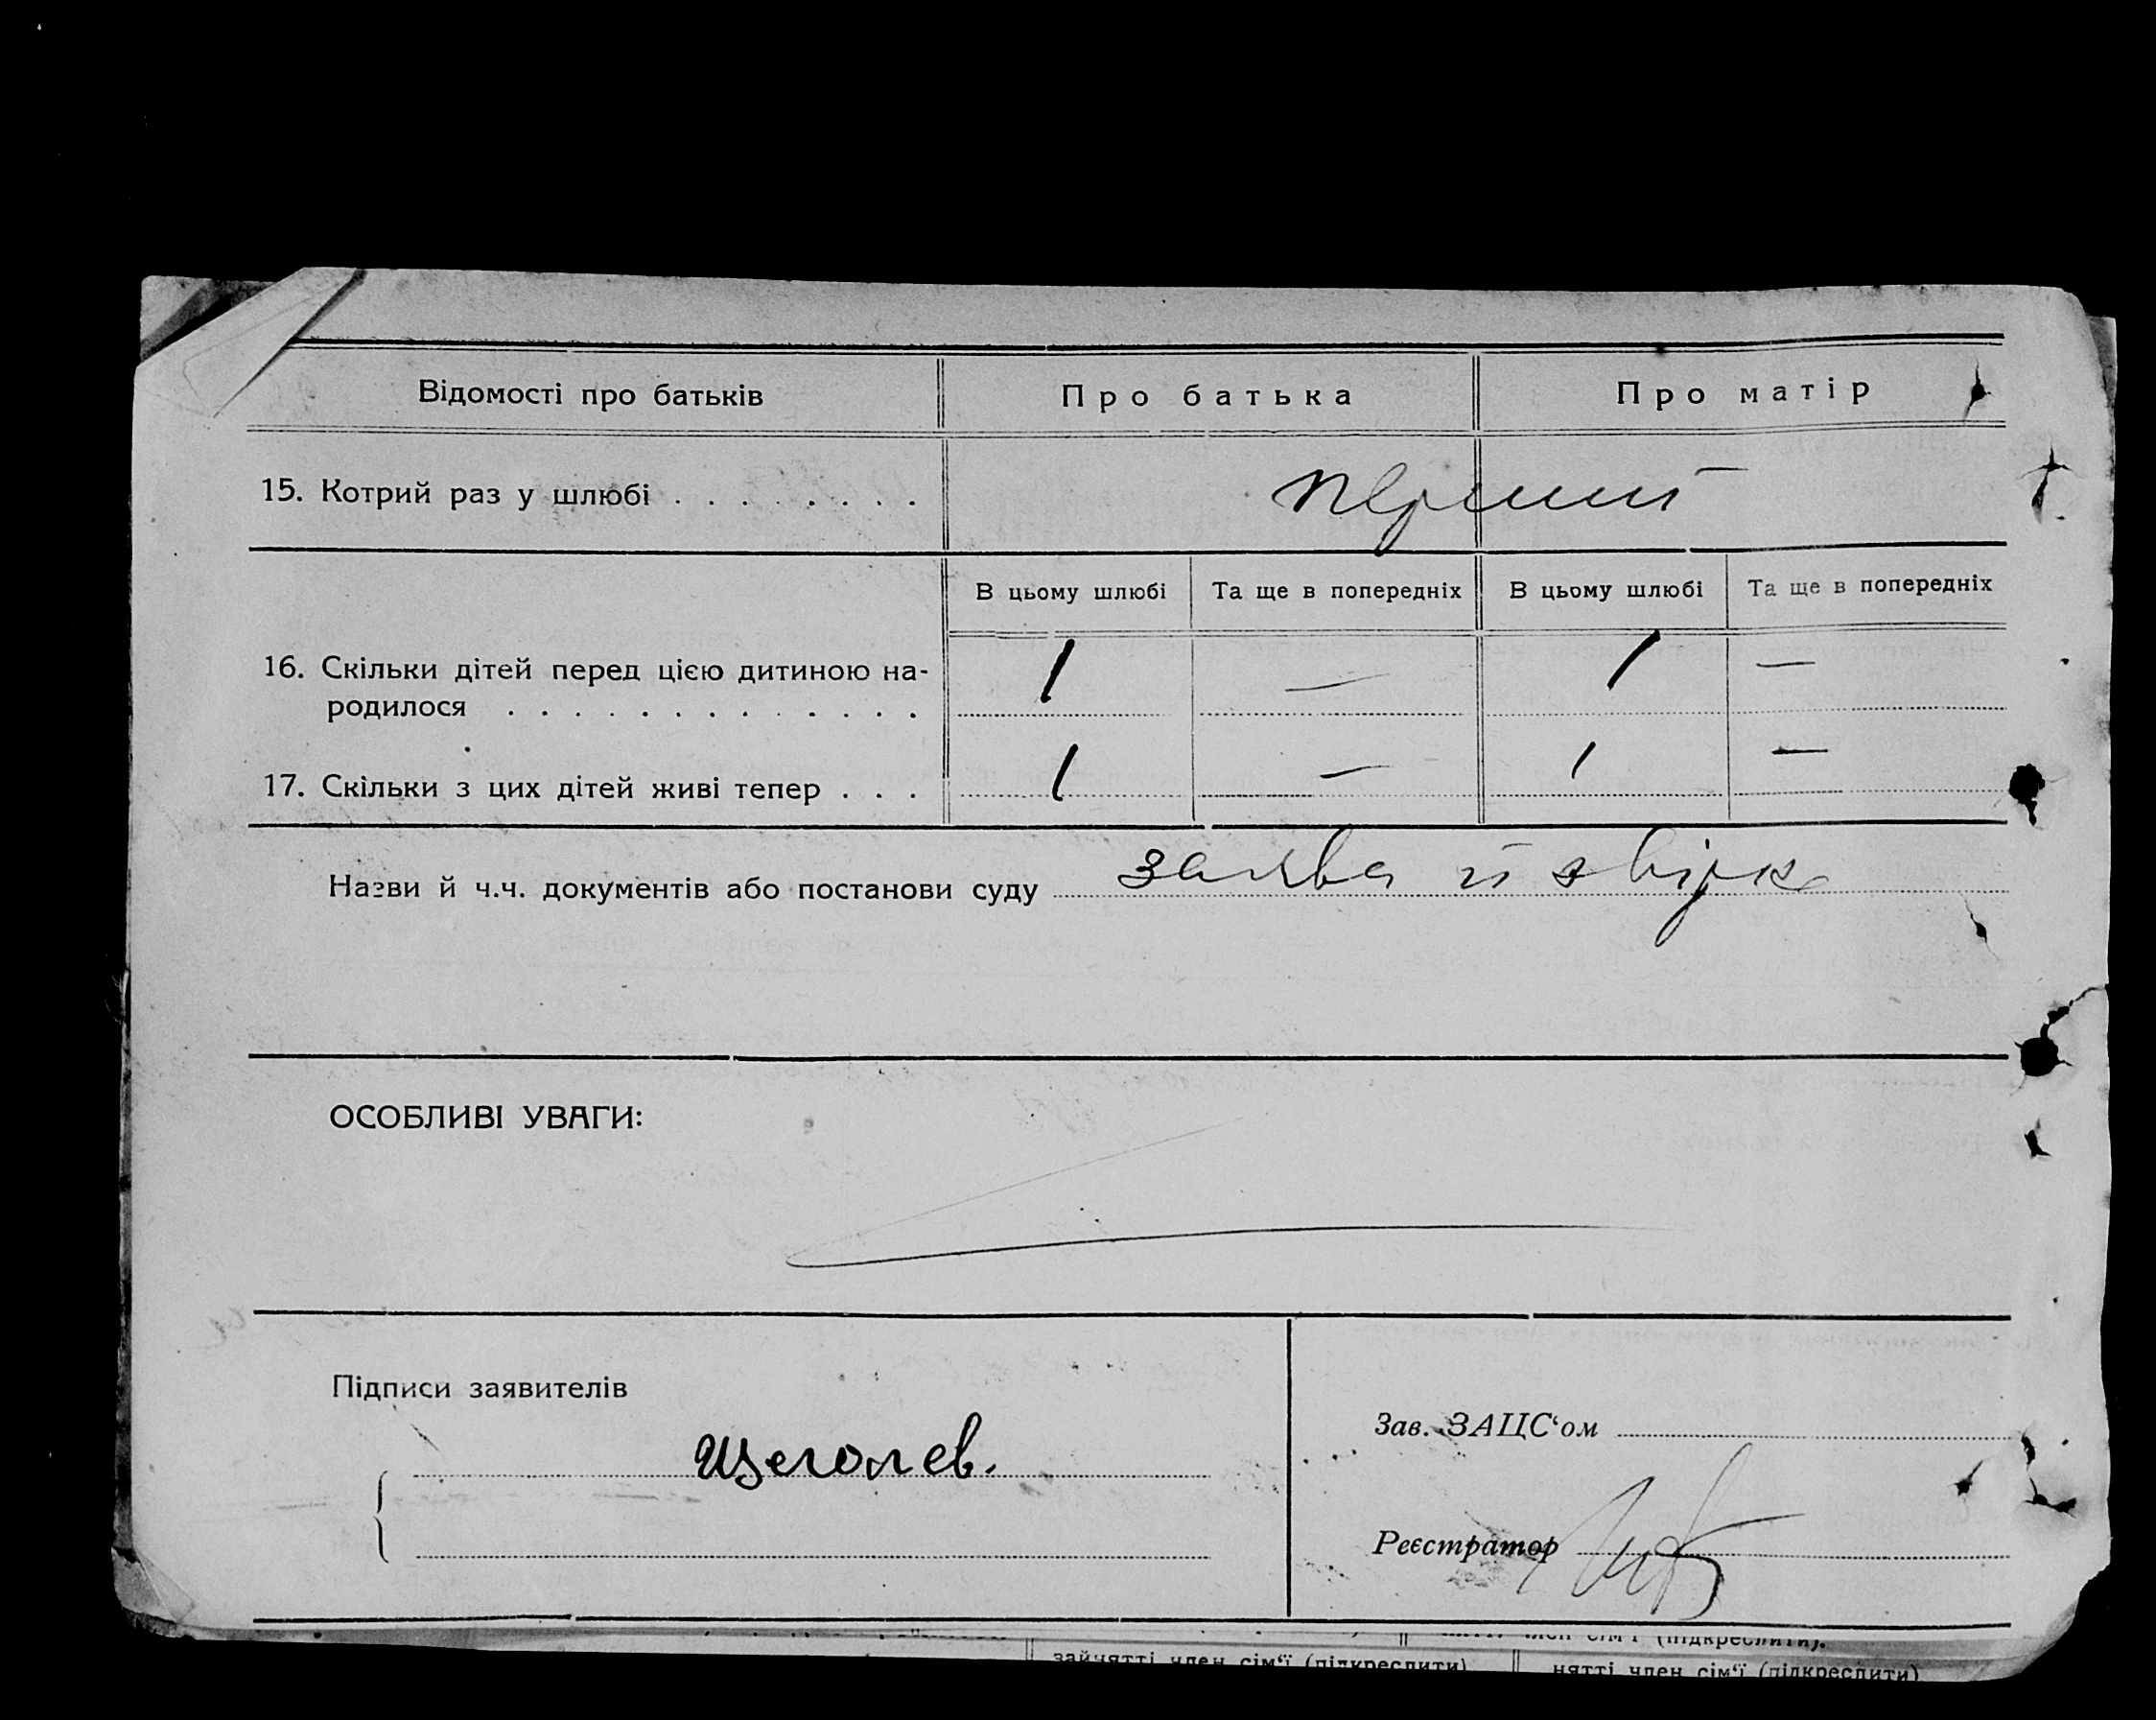 Відомості про батьків Про батька Про матір
15. Котрий раз у шлюбі . . . . . . . . перший
В цьому шлюбі Та ще в попередніх В цьому шлюбі Та ще в попередніх
16. Скільки дітей перед цією дитиною на- 1 — 1 —
родилося . . . . . . . . . . . . .
17. Скільки з цих дітей живі тепер . . . 1 — 1 —
Назви й ч.ч. документів або постанови суду заява й
ОСОБЛИВІ УВАГИ:
Підписи заявителів
Зав. ЗАЦС‘ом
Щеголев.
Реєстратор
член сім‘ї (підкреслити).
зайнятті член сім‘ї (підкреслити) нятті член сім‘ї (підкреслити)